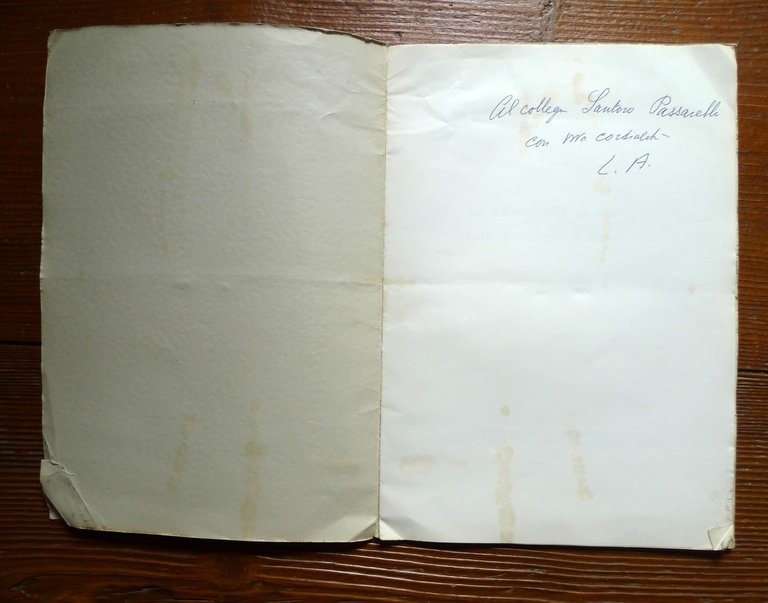 Al collega Santoro Passarelli
con viva cordialità
L. A.